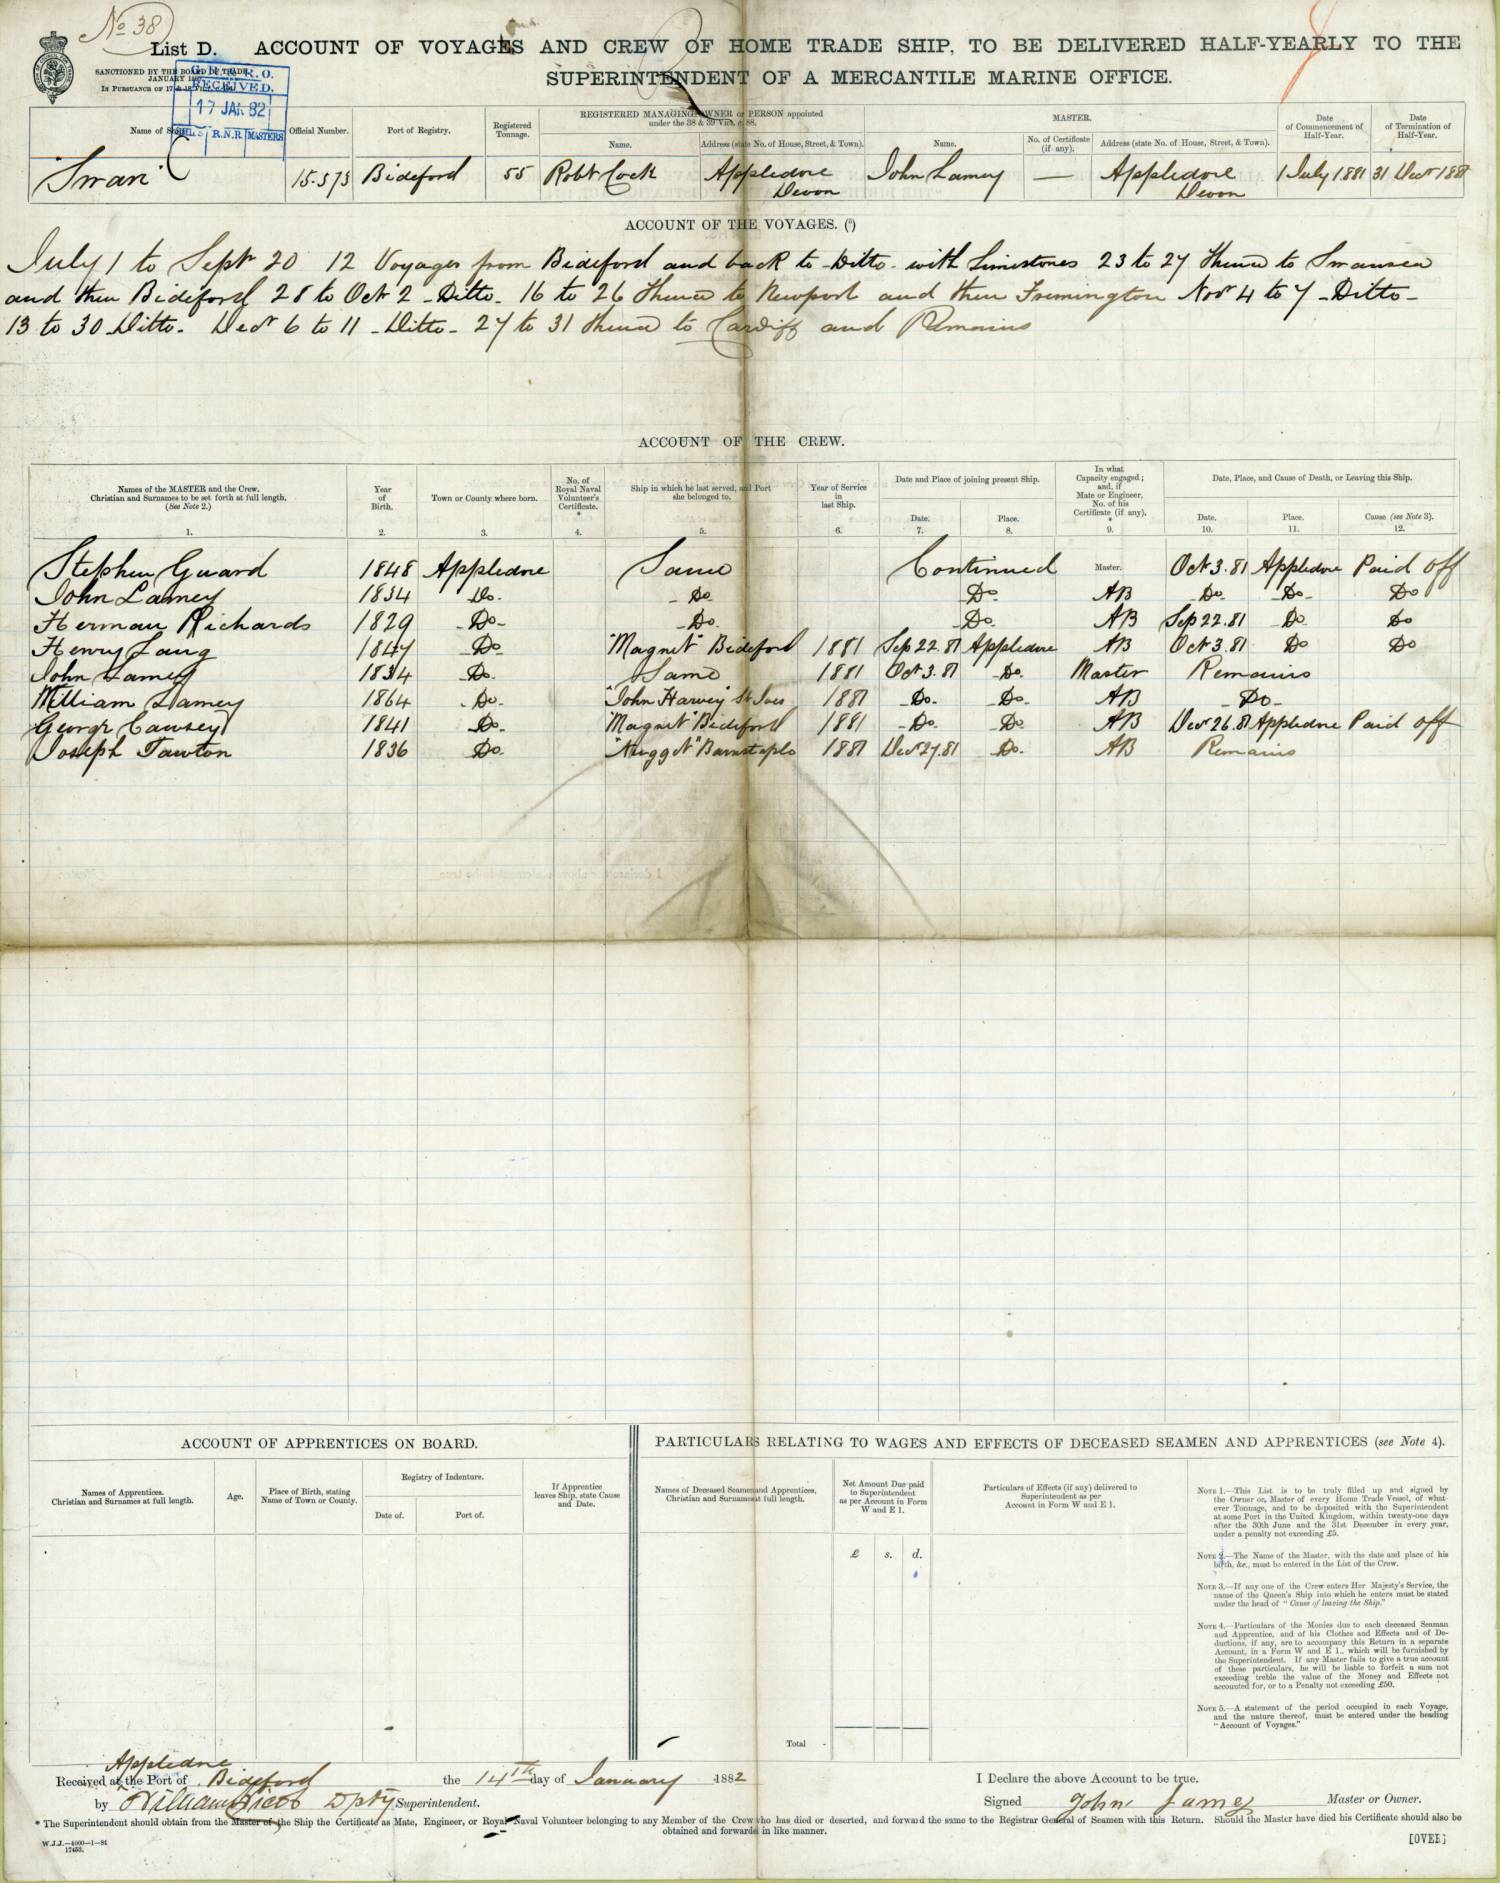 No 38
List D. ACCOUNT OF VOYAGES AND CREW OF HOME TRADE SHIP, TO BE DELIVERED HALF-YEARLY TO THE
SUPERINTENDENT OF A MERCANTILE MARINE OFFICE.
SANCTIONED BY THE BOARD OF TRADE
JANUARY
IN PURSUANCE OF 17 &
R.O.
RECEIVED.
17 JAN 82
R.N.R. MASTERS
Name of Ship. Official Number. Port of Registry. Registered Tonnage. REGISTERED MANAGING OWNER or PERSON appointed under the 38 & 39 Vict. c. 88. MASTER. Date of Commencement of Half-Year. Date of Termination of Half-Year.
Name. Address (state No. of House, Street, & Town). Name. No. of Certificate (if any). Address (state No. of House, Street, & Town).
"Swan" 15.573 Bideford 55 Robt Cock Appledore Devon John Lamey — Appledore Devon 1 July 1881 31 Decr 1881
ACCOUNT OF THE VOYAGES. (5)
July 1 to Sept 20 12 Voyages from Bideford and back to Ditto with Limestones 23 to 27 Thence to Swansea
and then Bideford 28 to Oct 2 Ditto 16 to 26 Thence to Newport and then Fremington Novr 4 to 7 Ditto
13 to 30 Ditto. Decr 6 to 11 Ditto 27 to 31 Thence to Cardiff and Remains
ACCOUNT OF THE CREW.
Names of the MASTER and the Crew. Christian and Surnames to be set forth at full length. (See Note 2.) Year of Birth. Town or County where born. No. of Royal Naval Volunteer's Certificate. * Ship in which he last served, and Port she belonged to. Year of Service in last Ship. Date and Place of joining present Ship. In what Capacity engaged; and, if Mate or Engineer, No. of his Certificate (if any). * Date, Place, and Cause of Death, or Leaving this Ship.
Date. Place. Date. Place. Cause (see Note 3).
1. 2. 3. 4. 5. 6. 7. 8. 9. 10. 11. 12.
Stephen Guard 1848 Appledore Same Continued Master. Oct 3. 81 Appledore Paid off
John Lamey 1834 Do. Do. Do AB Do Do Do
Herman Richards 1829 Do Do. Do AB Sep 22. 81 Do Do
Henry Lang 1847 Do "Magnet" Bideford 1881 Sep 22. 81 Appledore AB Oct 3. 81 Do Do
John Lamey 1834 Do. Same 1881 Oct 3. 81 Do. Master Remains
William Lamey 1864 Do. "John Harvey" St Ives 1881 Do. Do. AB Do
George Causey 1841 Do. "Magnet" Bideford 1881 Do. Do AB Decr 26. 81 Appledore Paid off
Joseph Tawton 1836 Do "Nugget" Barnstaple 1881 Decr 27. 81 Do. AB Remains
ACCOUNT OF APPRENTICES ON BOARD.
Names of Apprentices. Christian and Surnames at full length. Age. Place of Birth, stating Name of Town or County. Registry of Indenture. Date of. Port of. If Apprentice leaves Ship, state Cause and Date.
PARTICULARS RELATING TO WAGES AND EFFECTS OF DECEASED SEAMEN AND APPRENTICES (see Note 4).
Names of Deceased Seamen and Apprentices, Christian and Surnames at full length. Net Amount Due paid to Superintendent as per Account in Form W and E 1. Particulars of Effects (if any) delivered to Superintendent as per Account in Form W and E 1.
£ s. d.
Total
NOTE 1.—This List is to be truly filled up and signed by
the Owner or Master of every Home Trade Vessel, of what-
ever Tonnage, and to be deposited with the Superintendent
at some Port in the United Kingdom, within twenty-one days
after the 30th June and the 31st December in every year,
under a penalty not exceeding £5.
NOTE 2.—The Name of the Master, with the date and place of his
birth, &c., must be entered in the List of the Crew.
NOTE 3.—If any one of the Crew enters Her Majesty's Service, the
name of the Queen's Ship into which he enters must be stated
under the head of "Cause of leaving the Ship."
NOTE 4.—Particulars of the Monies due to each deceased Seaman
and Apprentice, and of his Clothes and Effects and of De-
ductions, if any, are to accompany this Return in a separate
Account, in a Form W and E 1., which will be furnished by
the Superintendent. If any Master fails to give a true account
of these particulars, he will be liable to forfeit a sum not
exceeding treble the value of the Money and Effects not
accounted for, or to a Penalty not exceeding £50.
NOTE 5.—A statement of the period occupied in each Voyage,
and the nature thereof, must be entered under the heading
"Account of Voyages."
Appledore
Received at the Port of Bideford the 14th day of January 1882
by William Dpty Superintendent.
I Declare the above Account to be true.
Signed John Lamey Master or Owner.
* The Superintendent should obtain from the Master of the Ship the Certificate as Mate, Engineer, or Royal Naval Volunteer belonging to any Member of the Crew who has died or deserted, and forward the same to the Registrar General of Seamen with this Return. Should the Master have died his Certificate should also be
obtained and forwarded in like manner.
W.J.J.—4000—1—81
17453.
[OVER]